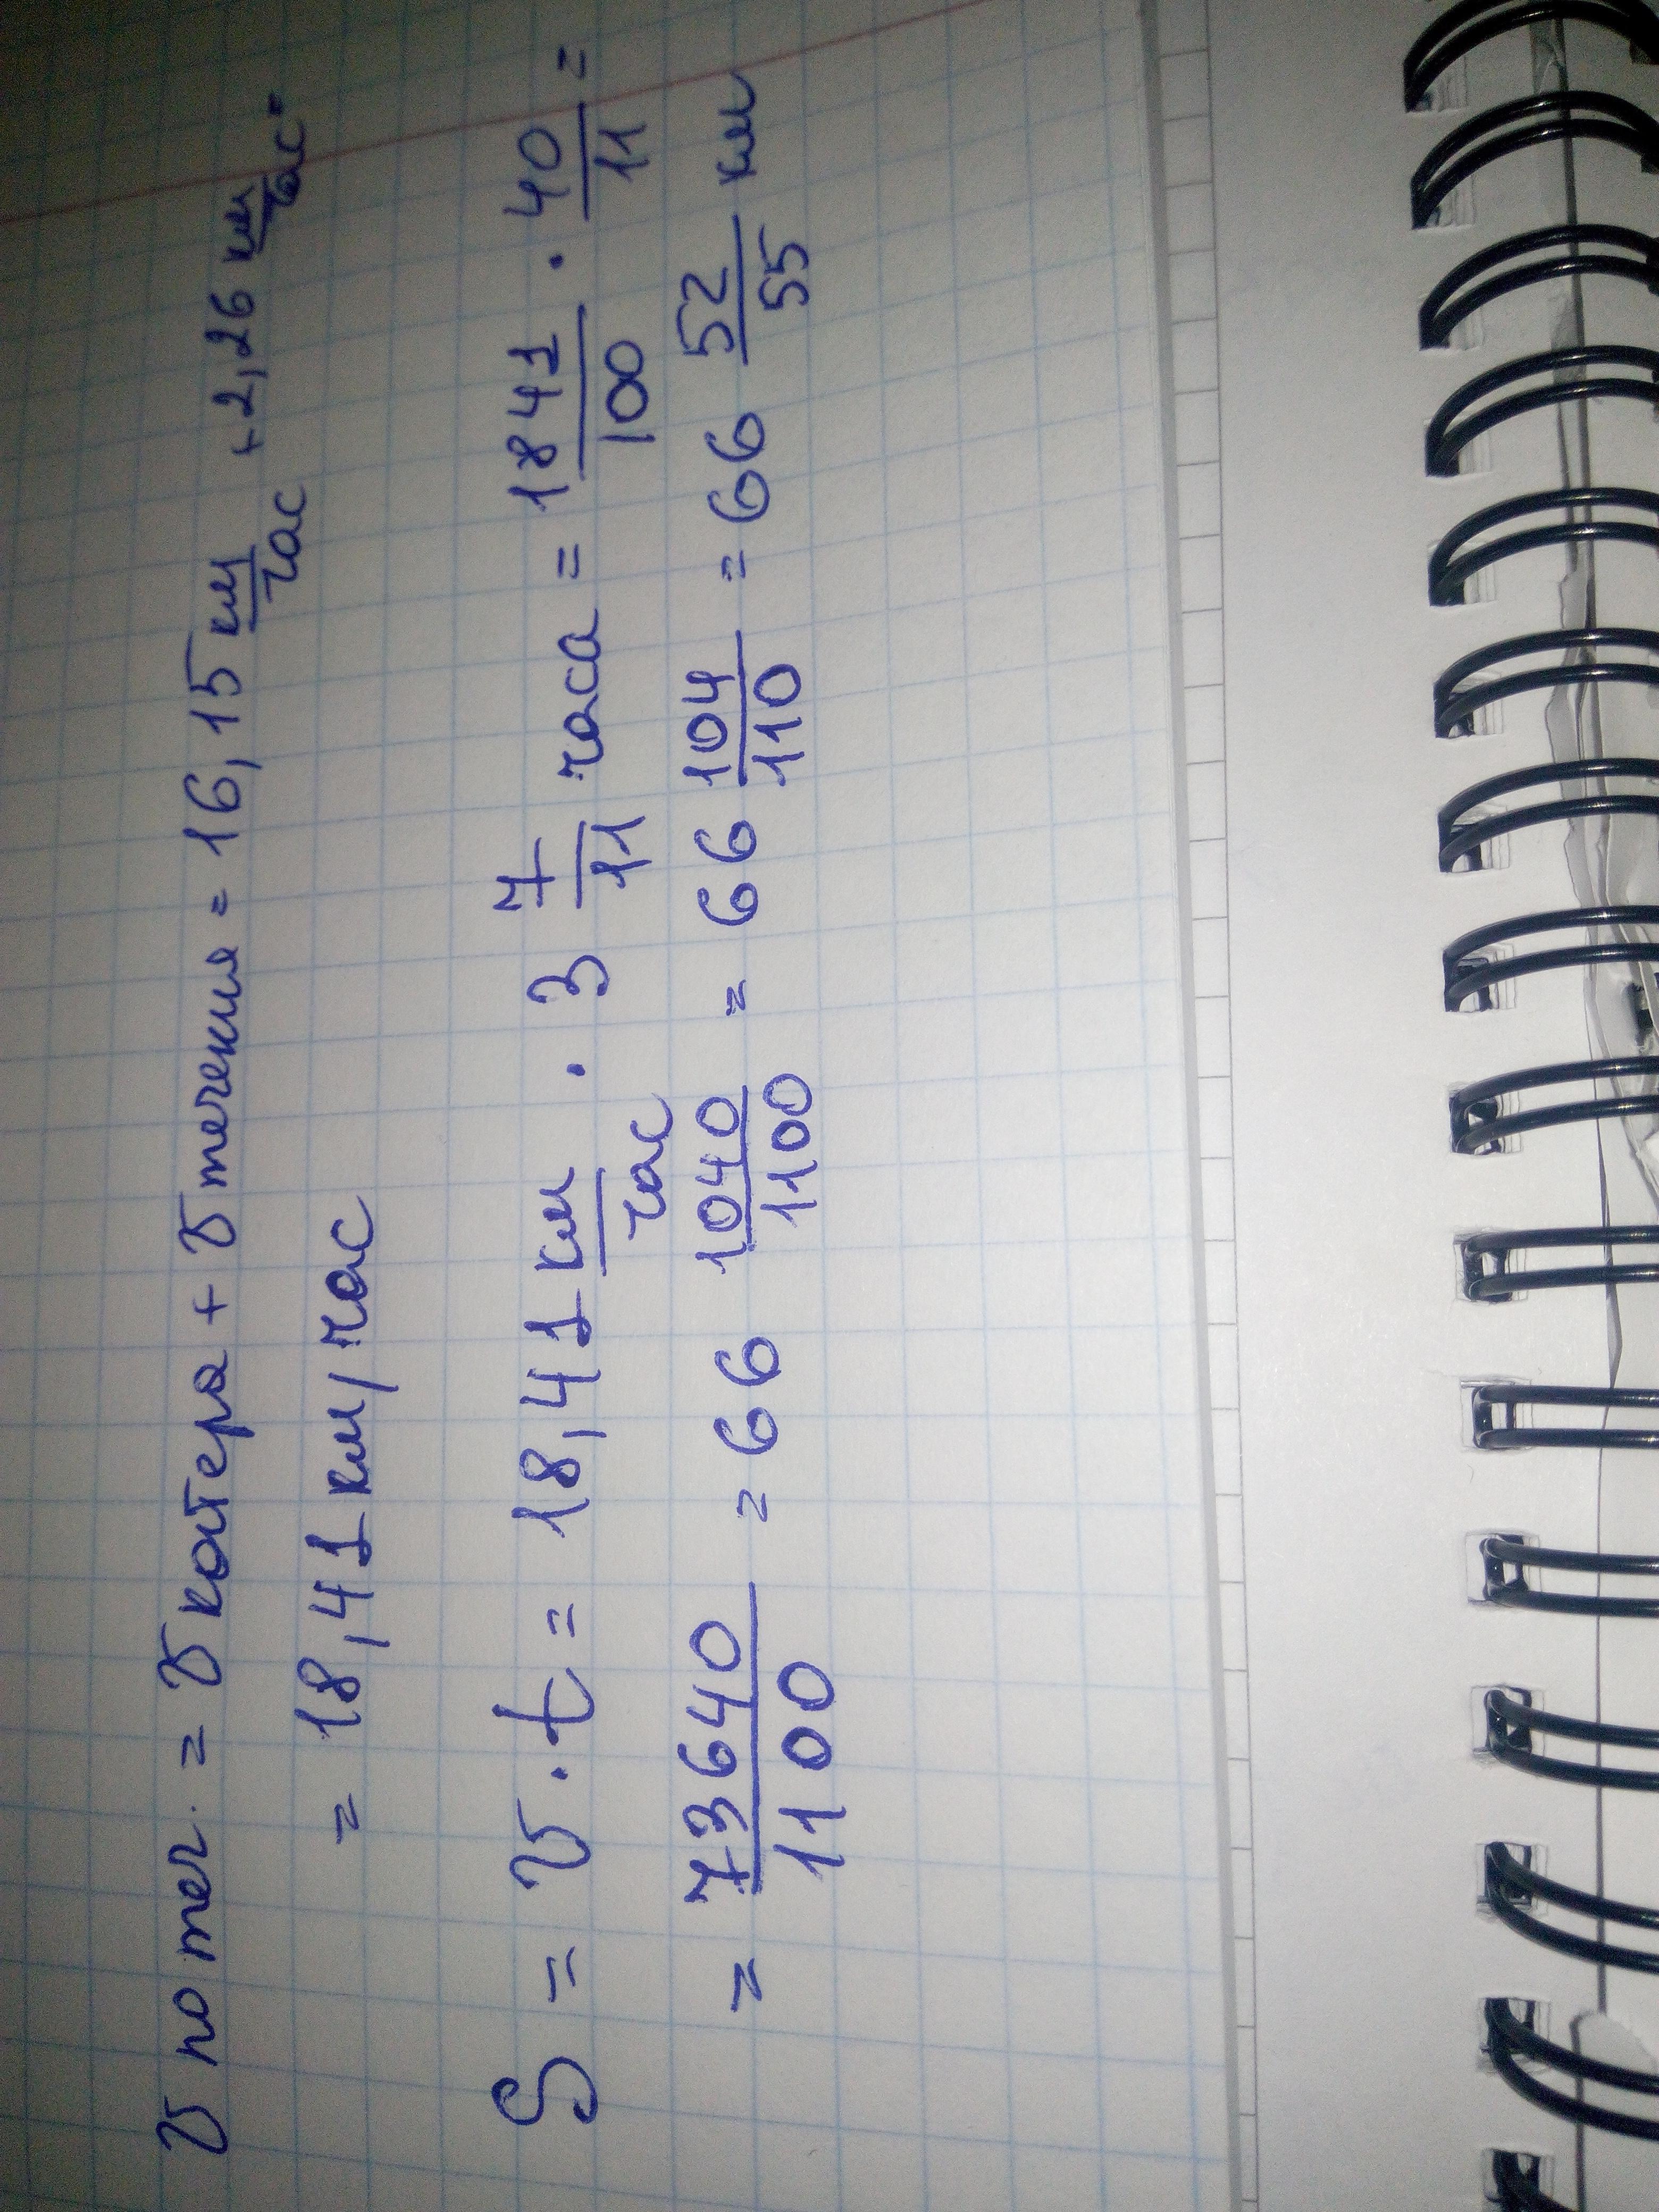 υ по теч. = υ катера + υ течения = 16,15 км/час + 2,26 км/час =
= 18,41 км/час
S = υ · t = 18,41 км/час · 3 7/11 часа = 1841/100 · 40/11 =
= 73640/1100 = 66 1040/1100 = 66 104/110 = 66 52/55 км